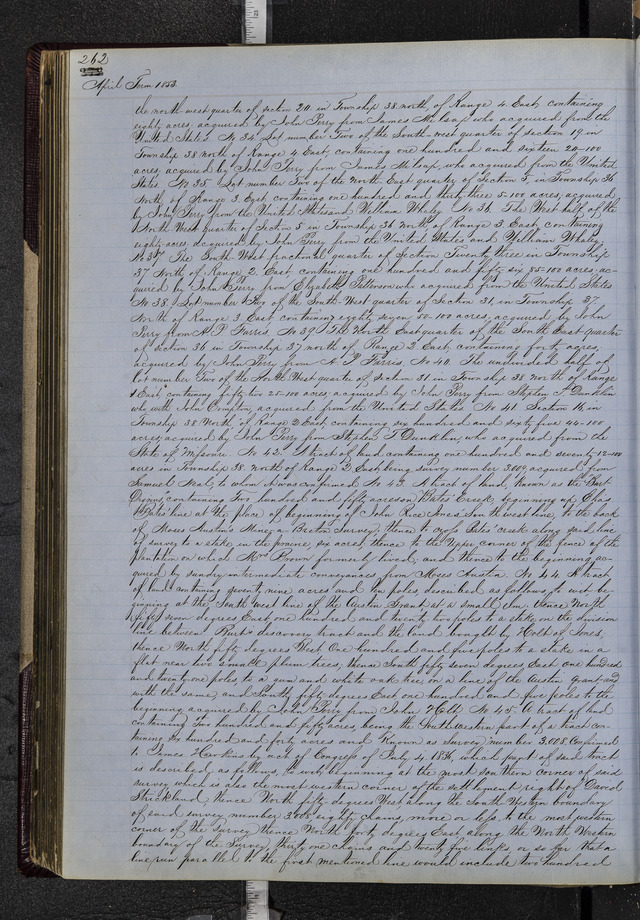 262
April Term 1853.
the north west quarter of section 20 in Township 38 north of Range 4 East, containing
eighty acres, acquired by John Perry from James McLeap who acquired from the
United States. No 34 Lot number Two of the South-west quarter of section 19 in
Township 38 north of Range 4 East, containing one hundred and sixteen 20-100
acres, acquired by John Perry from James McLeap, who acquired from the United
States. No 35. Lot number Two of the North East quarter of Section 5, in Township 36
North of Range 3 East, containing one hundred and thirty three 5-100 acres, acquired
by John Perry from the United States and William Whaley. No 36. The West half of the
North West quarter of Section 5 in Township 36 north of Range 3 East, containing
eighty acres, acquired by John Perry from the United States and William Whaley.
No 37. The South West fractional quarter of Section Twenty three in Township
37 North of Range 2 East containing one hundred and fifty six 85-100 acres, ac-
quired by John Perry from Elizabeth Patterson who acquired from the United States
No 38. Lot number of the South West quarter of Section 31, in Township 37
North of Range 3 East containing eighty seven 50-100 acres, acquired by John
Perry from A. P. Farris. No 39. The North East quarter of the South East quarter
of Section 36 in Township 37 north of Range 2 East, containing forty acres,
acquired by John Perry from A. P. Farris. No 40. The undivided half of
Lot number Two of the North West quarter of Section 31 in Township 38 North of Range
East, containing fifty two 25-100 acres, acquired by John Perry from Stephen T. Dunklin
who with John Compton, acquired from the United States. No 41. Section 16, in
Township 38 North of Range 2 East, containing six hundred and sixty five 44-100
acres, acquired by John Perry from Stephen T Dunklin, who acquired from the
State of Missouri. No 42. A tract of land containing one hundred and seventy 12-100
acres in Township 38 North of Range 2 East being survey number 3009, acquired from
Samuel Neal, to whom it was confirmed. No 43. A tract of land, known as the
containing Two hundred and fifty acres on Bates Creek, beginning up Elias
Bates' line at the place of beginning of John Rice Jones' South west line, to the back
of Moses Austin's Mine, a Breton Survey, thence to cross Bates' creek along said line
of survey to a stake in the prairie, thence to the Upper corner of the fence of the
plantation on which Mrs Brown formerly lived, and thence to the beginning ac-
quired by sundry intermediate conveyances from Moses Austin. No 44. A tract
of land containing seventy nine acres and ten poles, described as follows, to wit be-
ginning at the South west line of the Austin Grant at a small Elm, thence North
fifty seven degrees East one hundred and twenty two poles to a stake on the division
line between Burt's discovery tract and the land bought by Holt of Jones;
thence North fifty degrees West One hundred and five poles to a stake in a
flat near two small plum trees, thence South fifty seven degrees East one hundred
and twenty one poles to a gum and white oak tree on a line of the Austin grant, and
with the same, and South fifty degrees East one hundred and five poles to the
beginning, acquired by John Perry from John Holt. No 45. A tract of land
containing Two hundred and fifty acres, being the South western part of a tract con-
taining Six hundred and forty acres and Known as survey number 3,008, Confirmed
to James Hawkins by act of Congress of July 4, 1836, which part of said tract
is described, as follows, to wit, beginning at the most southern corner of said
survey which is also the most western corner of the settlement right of David
Strickland, thence North fifty degrees West along the South Western boundary
of said survey number 3008 eighty chains, more or less to the most western
corner of the Survey thence North forty degrees East, along the North Western
boundary of the Survey, thirty one chains and twenty five links, or so far that a
line run parallel to the first mentioned line would include two hundred